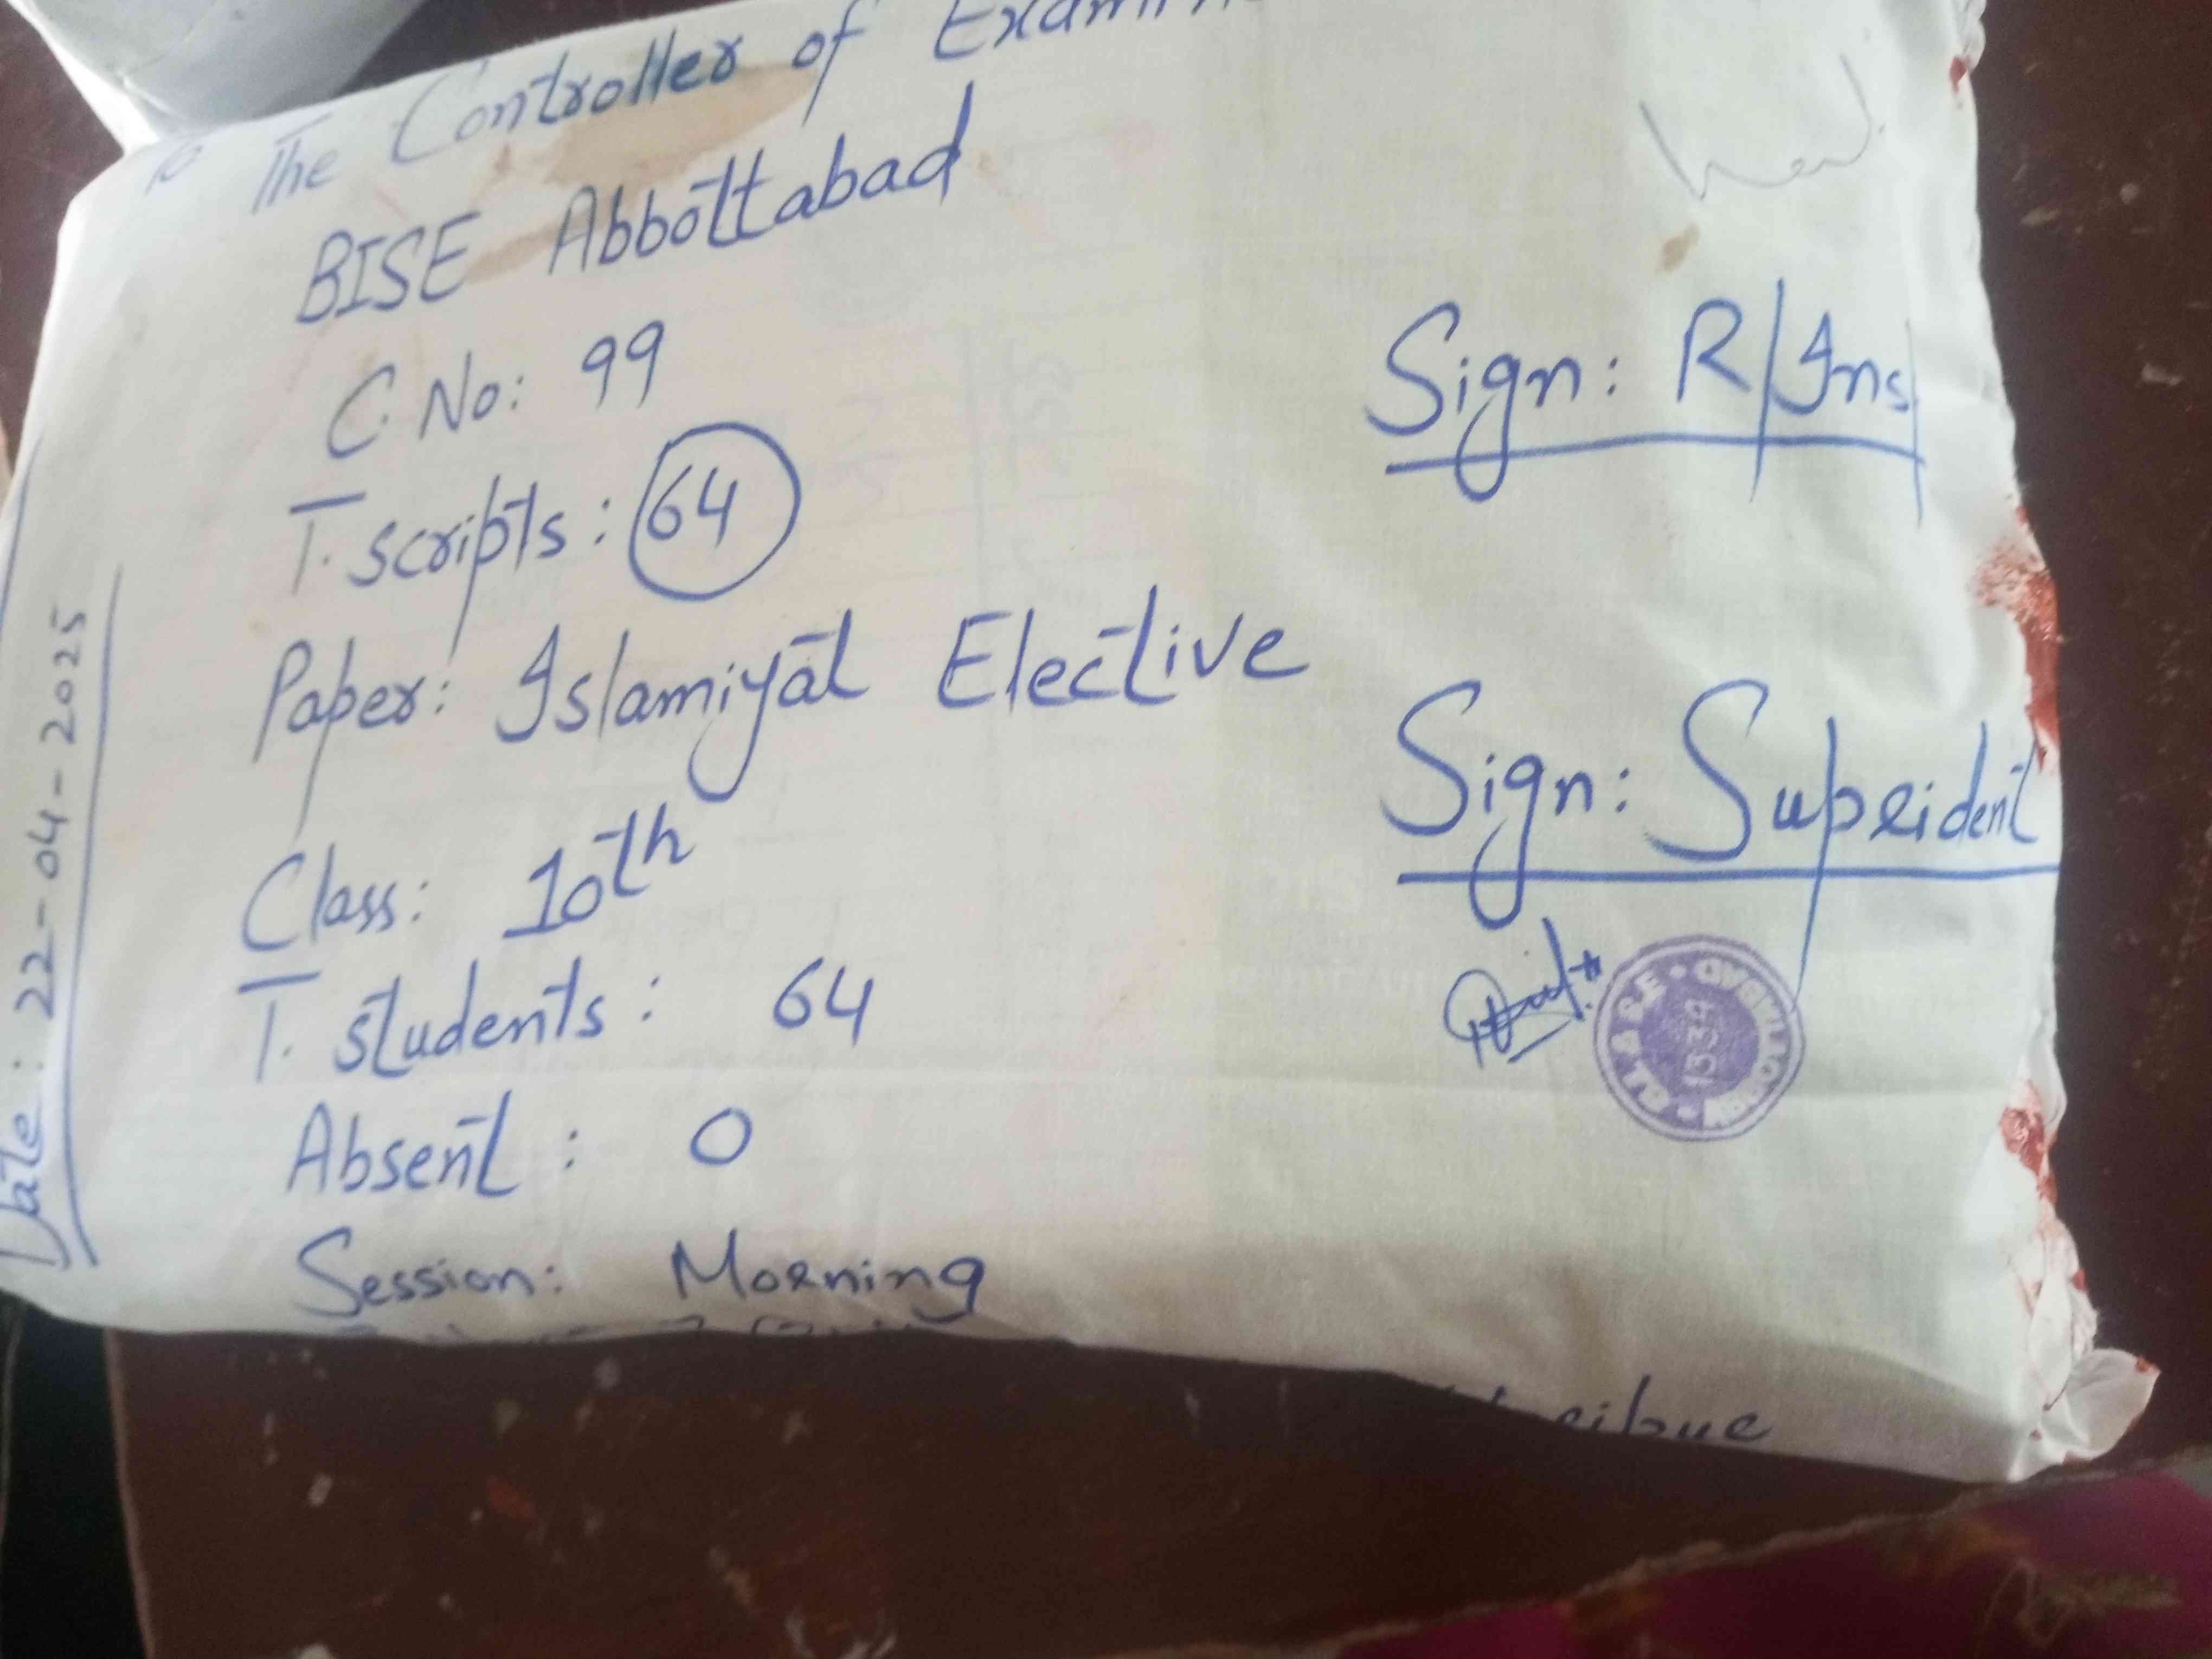 To The Controller of
BISE Abbottabad
C. No: 99
T. scripts: 64
Paper: Islamiyat Elective
Class: 10th
T. students: 64
Absent: 0
Session: Morning
Date: 22-04-2025
Sign: R/Ins
Sign: Supridént
1539